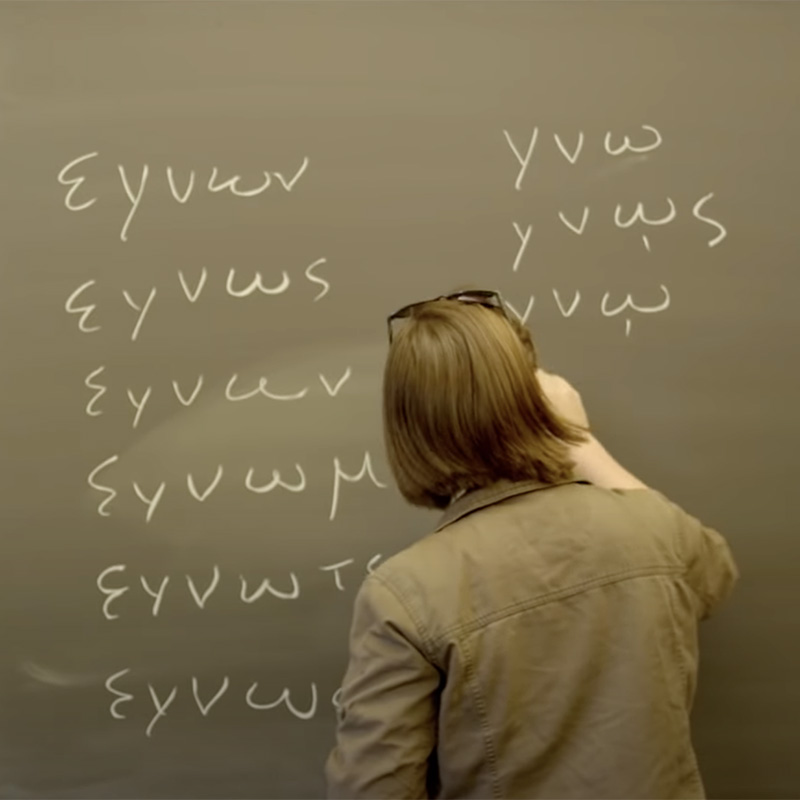 εγνων
εγνως
εγνων
εγνωμ
εγνωτ
εγνω
γνω
γνῳς
γνῳ